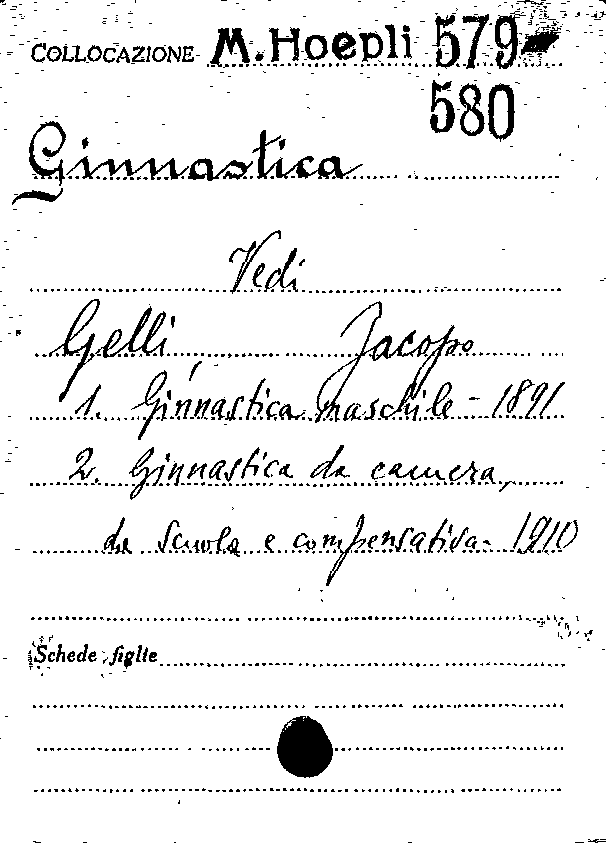 COLLOCAZIONE M. Hoepli 579-
580
Ginnastica
Vedi
Gelli, Jacopo
1. Ginnastica maschile - 1891
2. Ginnastica da camera,
da scuola e compensativa - 1910
Schede figlie